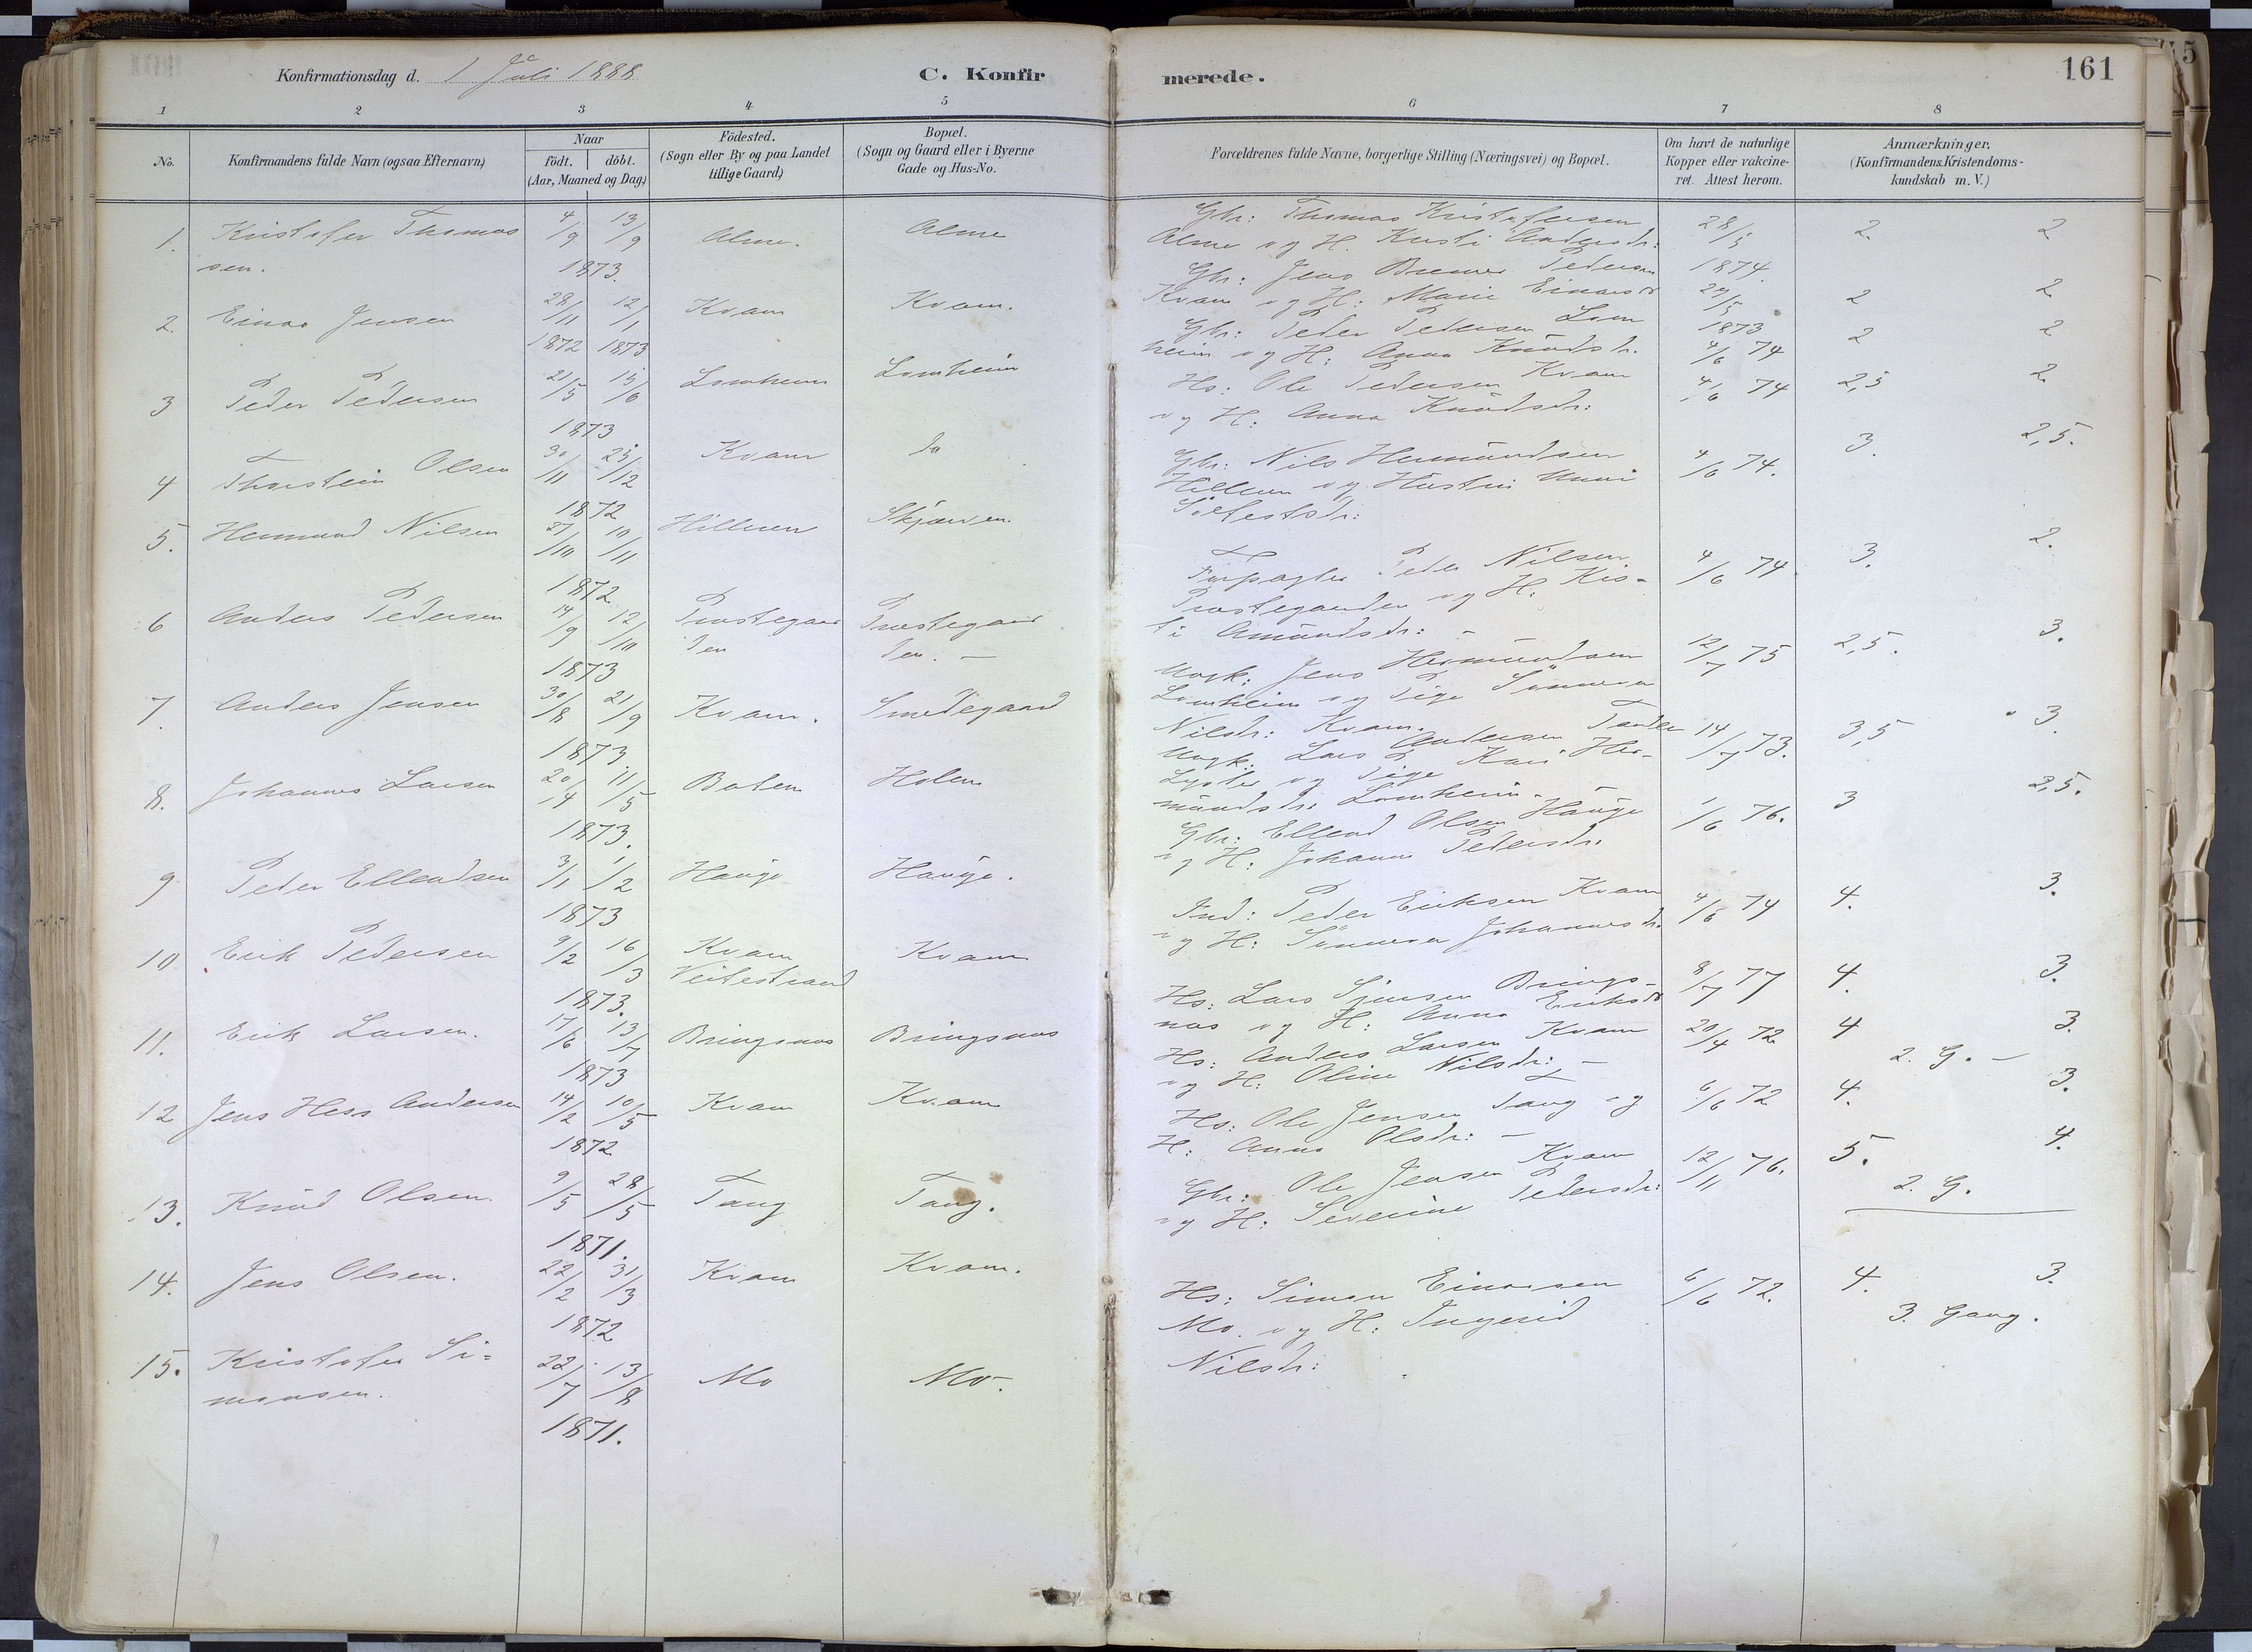 Konfirmationsdag d. 1 Juli 1888
C. Konfirmerede.
161
1 2 3 4 5 6 7 8
No.
Konfirmandens fulde Navn (ogsaa Efternavn)
Naar
födt. döbt.
(Aar, Maaned og Dag)
Födested.
(Sogn eller By og paa Landet
tillige Gaard)
Bopæl.
(Sogn og Gaard eller i Byerne
Gade og Hus-No.
Forældrenes fulde Navne, borgerlige Stilling (Næringsvei) og Bopæl.
Om havt de naturlige
Kopper eller vakcine-
ret. Attest herom.
Anmærkninger.
(Konfirmandens Kristendoms-
kundskab m. V.)
1. Kristofer Thomas
sen.
4/9 13/9
1873.
Alme. Alme
Gbr: Thomas Kristofersen
Alme og H. Kirsti Andersdr:
28/5
1874.
2. 2
2. Einar Jensen
28/11 12/1
1872 1873
Kvam Kvam.
Gbr: Jens Bremer Pedersen
Kvam og H: Marie Einarsdr
29/5
1873
2 2
3 Peder Pedersen
21/5 15/6
1873
Lomheim Lomheim
Gbr: Peder Pedersen Lom
heim og H: Anna Knudsdr.
4/6 74
2 2
4 Thorstein Olsen
30/11 25/12
1872
Kvam do
Hs: Ole Pedersen Kvam
og H: Anna Knudsdr:
4/6 74
2,5 2.
5. Hermund Nilsen
27/10 10/11
1872
Hillmen Skjærven.
Gbr: Nils Hermundsen
Hillmen og Hustru Unni
Siefestdr:
4/6 74.
3. 2,5.
6 Anders Pedersen
14/9 12/10
1873
Prestegaar
den
Prestegaar
den. –
Forpagter Peder Nilsen
Prestegaarden og H. Kir-
sti Amundsdr: –
4/6 74.
3. 2.
7. Anders Jensen
30/8 21/9
1873.
Kvam. Smedegaard
Ungk: Jens Hermundsen
Lomheim og Pige Sünneva
Nilsdr: Kvam.
12/7 75
2,5. 3.
8. Johannes Larsen
20/4 11/5
1873.
Bolen Holen
Ungk: Lars Andersen
Lyster og Pige Kari Her-
mundsdr. Lomheim.
14/7 73.
3,5 3.
9 Peder Ellendsen
3/1 1/2
1873
Hauge Hauge.
Gbr: Ellend Olsen Hauge
og H: Johanne Pedersdr.
1/6 76.
3 2,5.
10 Erik Pedersen
9/2 16/3
1873.
Kvam
Veitestrand
Kvam
Ind: Peder Eriksen Kvam
og H: Sünneva Johannesdr.
4/6 74
4. 3.
11. Erik Larsen.
17/6 13/7
1873
Bringsnæs Bringsnæs
Hs: Lars Simsen Brings-
næs og H: Anna Eriksdr
8/7 77
4. 3.
12 Jens Hess Andersen
14/2 10/5
1872
Kvam Kvam
Hs: Anders Larsen Kvam
og H: Oline Nilsdr: –
20/4 72.
4 3.
2. G. –
13. Knud Olsen.
9/5 28/5
1871.
Tang Tang.
Hs: Ole Jensen Tang og
H: Anna Olsdr: –
6/6 72
4. 3.
14. Jens Olsen.
22/2 31/3
1872
Kvam Kvam.
Gbr: Ole Jensen Kvam
og H: Severine Pedersdr:
12/11 76.
5. 4.
2. G.
15. Kristofer Si-
monsen.
22/7 13/8
1871.
Mo Mo.
Hs: Simon Einarsen
Mo. og H: Ingerid
Nilsdr:
6/6 72.
4. 3.
3. Gang.